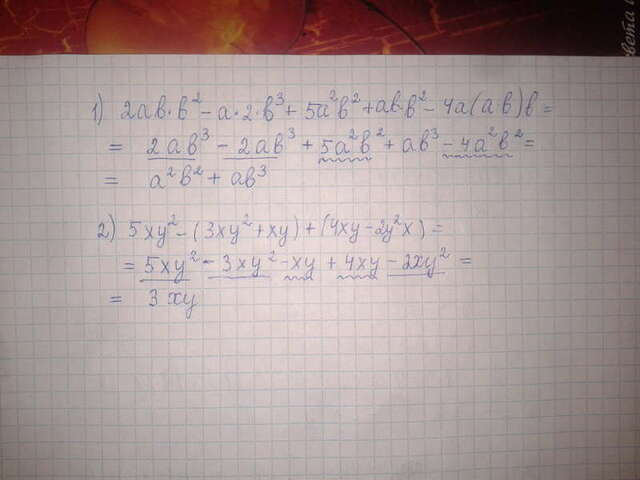 1) 2ab·b²-a·2·b³+5a²b²+ab·b²-4a(a·b)b=
= 2ab³-2ab³+5a²b²+ab³-4a²b²=
= a²b²+ab³
2) 5xy²-(3xy²+xy)+(4xy-2y²x)=
=5xy²-3xy²-xy+4xy-2xy²=
= 3xy